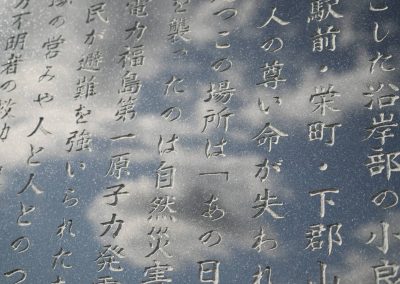 とした沿岸部の小良
駅前・栄町・下郡山
人の尊い命が失われ
つこの場所は「あの日
を襲ったのは自然災害
電力福島第一原子力発電
民が避難を強いられた
の営みや人と人とのつ
方不明者の